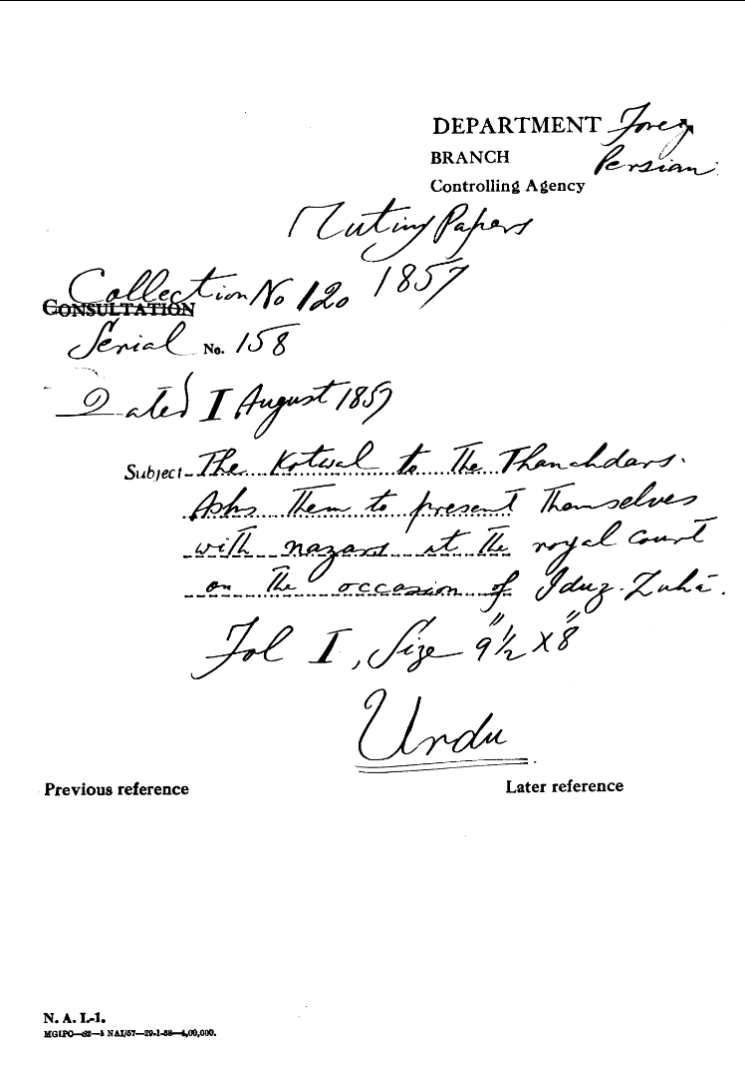 DEPARTMENT Foreg
BRANCH Persian
Controlling Agency
Mutiny Papers
1857
Collection No 120
CONSULTATION
Serial No. 158
Dated I August 1857
Subject The Kotwal to the Thanahdars.
Asks them to present themselves
with nazars at the royal court
on the occasion of Iduz-Zuha.
Fol I, Size 9½" X 8"
Urdu
Previous reference Later reference
N. A. I.-1.
MGIPC—S2—5 NAI/57—29-1-58—4,00,000.